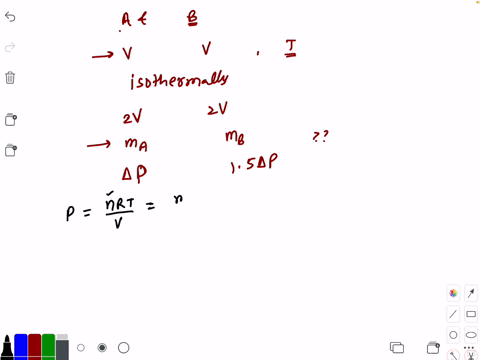 A & B
→ V V , T
isothermally
2V 2V
→ mA mB ??
ΔP 1.5ΔP
P = nRT/V = n